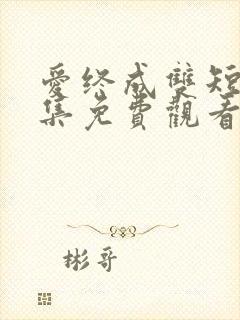 愛終成雙短
集免費觀看
彬哥